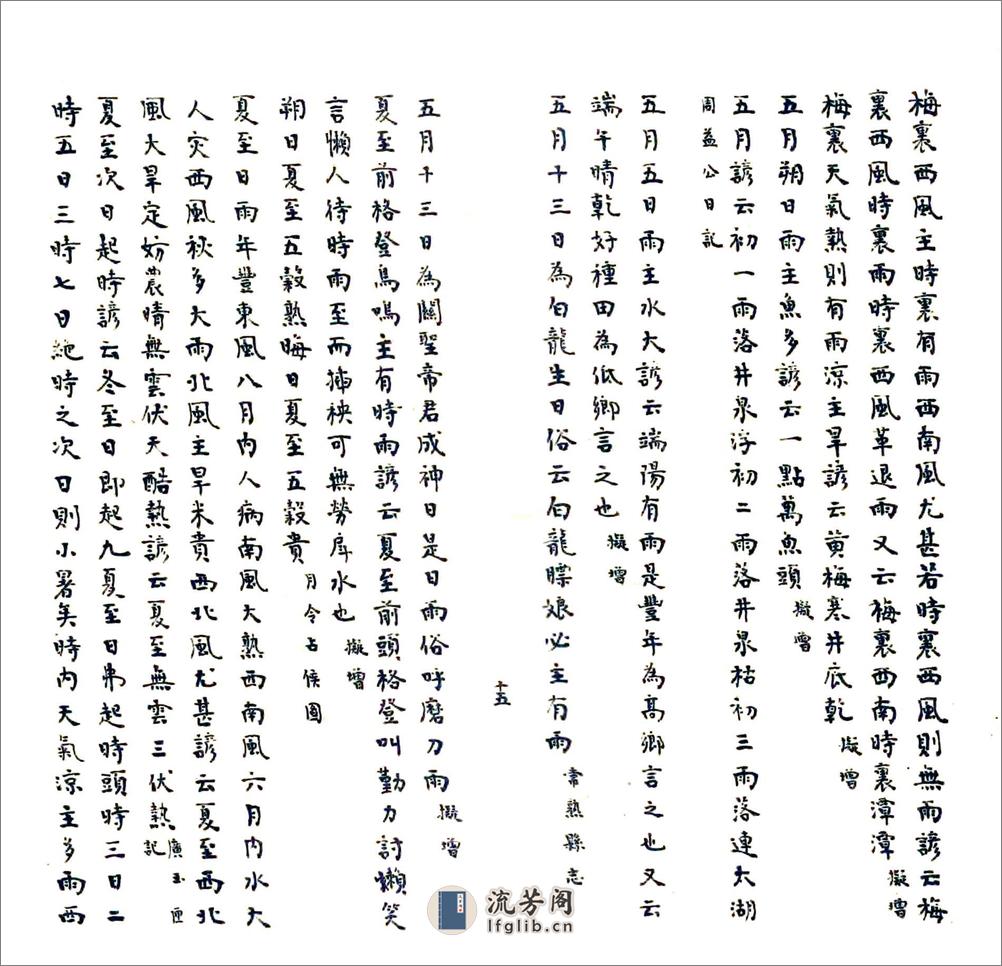 梅裏西風主時裏有雨西南風尤甚若時裏西風則無雨諺云梅
裏西風時裏雨時裏西風革退雨又云梅裏西南時裏潭潭擬增
梅裏天氣熟則有雨涼主旱諺云黄梅寒井底乾擬增
五月朔日雨主魚多諺云一點萬魚頭擬增
五月諺云初一雨落井泉浮初二雨落井泉枯初三雨落連太湖
周益公日記
五月五日雨主水大諺云端陽有雨是豐年為高鄉言之也又云
端午晴乾好種田為低鄉言之也擬增
五月十三日為白龍生日俗云白龍瞟娘必主有雨常熟縣志
十五
五月十三日為關聖帝君成神日是日雨俗呼磨刀雨擬增
夏至前格登鳥鳴主有時雨諺云夏至前頭格登叫勤力討懶笑
言懶人待時雨至而插秧可無勞戽水也擬增
朔日夏至五穀熟晦日夏至五穀貴月令占候圖
夏至日雨年豐東風八月内人病南風大熟西南風六月内水大
人灾西風秋多大雨北風主旱米貴西北風尤甚諺云夏至西北
風大旱定妨農晴無雲伏天酷熱諺云夏至無雲三伏熱廣玉匣記
夏至次日起時諺云冬至日即起九夏至日弗起時頭時三日二
時五日三時七日絶時之次日則小暑矣時内天氣涼主多雨西
流芳阁
lfglib.cn